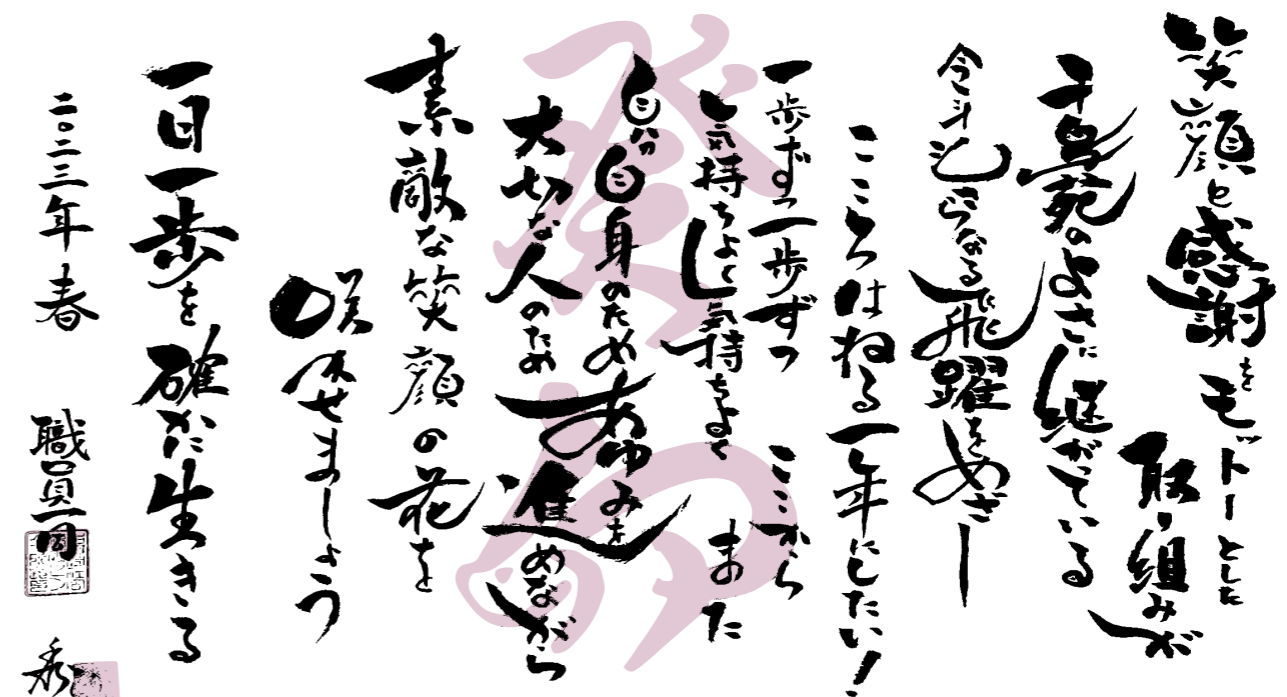 笑顔と感謝をモットーとした
取り組みが
千鳥苑のよさに継がっている
さらなる飛躍をめざし
こころはねる一年にしたい!
一歩ずつ一歩ずつ ここから
気持ちよく気持ちよく また
自分自身のため あゆみを
大切な人のため 進めながら
素敵な笑顔の花を
咲かせましょう
一日一歩を確かに生きる
二〇二三年 春 職員一同
秀